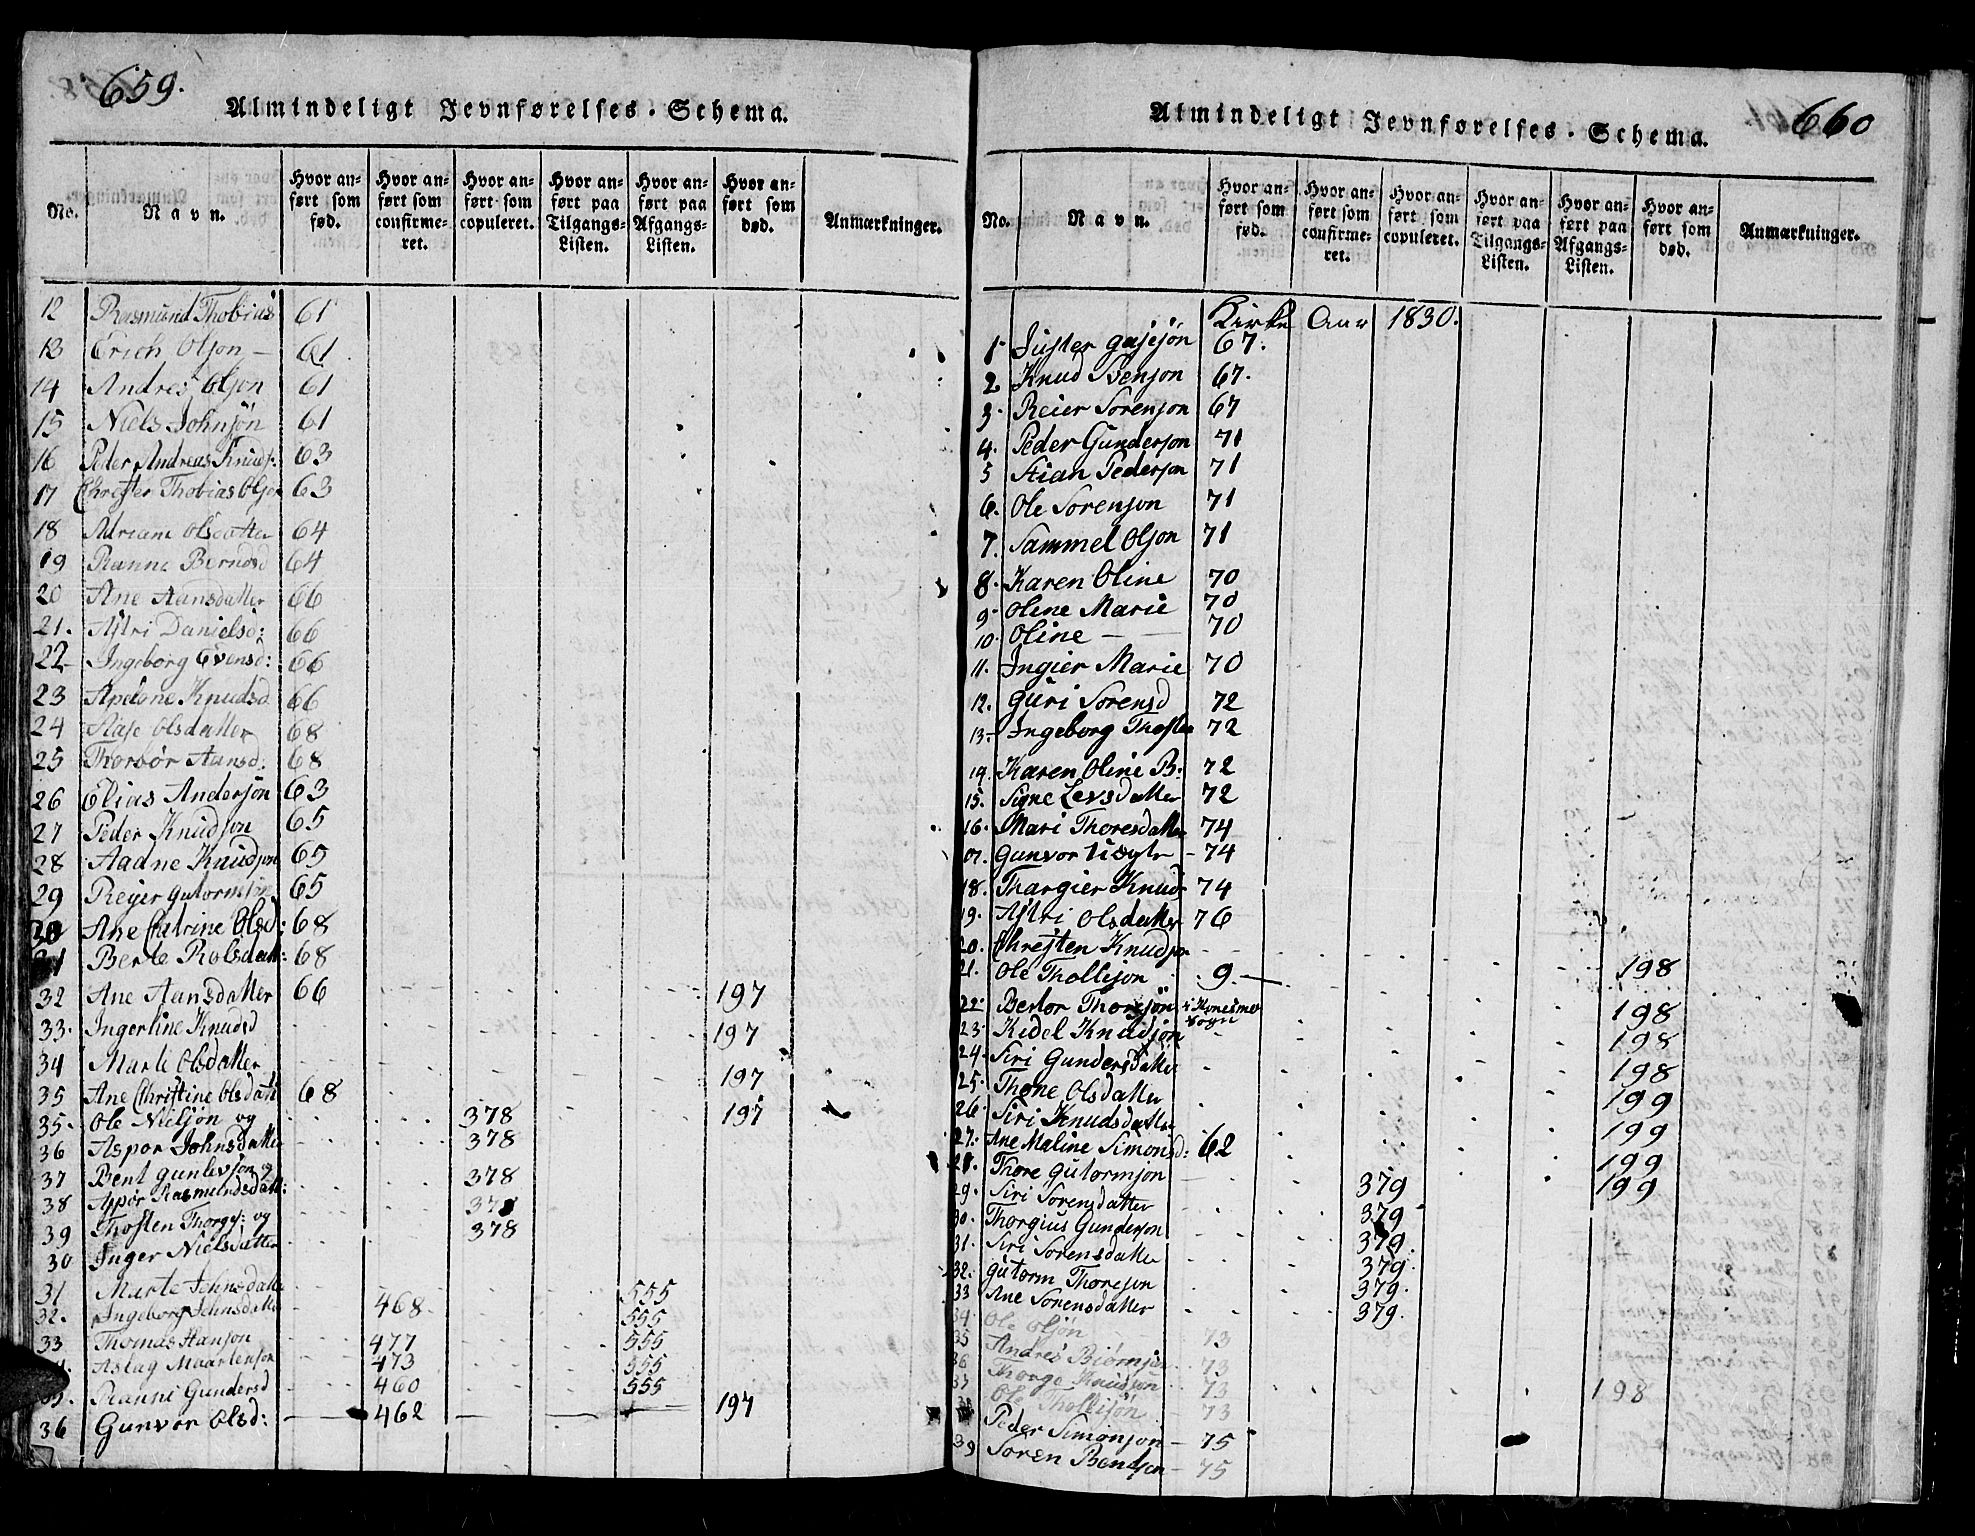 659.
Almindeligt Jevnførelses-Schema.
No.
Navn.
Hvor anført som fød.
Hvor anført som confirmeret.
Hvor anført som copuleret.
Hvor anført paa Tilgangs-Listen.
Hvor anført paa Afgangs-Listen.
Hvor anført som død.
Anmærkninger.
12 Rasmund Thobias 61
13 Erich Olson – 61
14 Andres Olson 61
15 Niels Johnsøn 61
16 Peder Andreas Knuds: 63
17 Chrester Thobias Olson 63
18 Adriane Olsdatter 64
19 Ranne Berndsd 64
20 Ane Aansdatter 66
21. Astri Danielsd: 66
22 Ingeborg Evensd: 66
23 Anetone Knudsd 66
24 Aase Olsdatter 68
25 Thorbør Aansd: 68
26 Elias Andersøn 63
27 Peder Knudson 65
28 Aadne Knudson 65
29 Reyer Gutormsøn 65
30 Ane Catrine Olsd: 68
31 Berte Rolsdatt: 68
32 Ane Aansdatter 66 197
33. Ingerline Knudsd 197
34 Marte Olsdatter 197
35 Ane Christine Olsdatt 68 197
35. Ole Nielsøn og 378
36 Aspor Johnsdatter 378
37 Bent Gunlevson og 378
38 Aspor Rasmundsdatt: 378
39 Thosten Thorgs: og 378
30 Inger Nielsdatter
31 Marte Johnsdatter 555
32. Ingeborg Johnsdatter 468 555
33 Thomas Hanson 477 555
Aslag Maartenson 473 555
Ranni Gundersd 460 555
36 Gunvor Olsd: 462 197
660
Almindeligt Jevnførelses-Schema.
No.
Navn.
Hvor anført som fød.
Hvor anført som confirmeret.
Hvor anført som copuleret.
Hvor anført paa Tilgangs-Listen.
Hvor anført paa Afgangs-Listen.
Hvor anført som død.
Anmærkninger.
Kirke Aar 1830.
1 Juster Gasesøn 67.
2 Knud Svenson 67.
3. Reier Sorenson 67
4. Peder Gunderson 71
5 Stian Pederson 71
6. Ole Sorenson 71
7. Sammel Olson 71
8. Karen Oline 70
9 Oline Marie 70
10 Oline – 70
11. Ingier Marie 70
12. Guri Sorensd 72
13. Ingeborg Thoste 72
14. Karen Oline B: 72
15. Signe Levsdatter 72
16. Mari Thoresdatter 74
Gunvor 74
18. Thargier Knud 74
19. Astri Olsdatter 76
20. Chresten Knudson
21. Ole Thollison 9. 198
22. Bertor Thorsøn 198
23. Kidel Knudsøn 198
24. Siri Gundersdatter 198
25. Thone Olsdatter 199
26. Siri Knudsdatter 199
27. Ane Maline Simonsd: 62 199
28. Thore Gutormson 379 199
29. Siri Sorensdatter 379
30. Thorgius Gunderson 379.
31. Siri Sorensdatter 379.
32. Gutorm Thoreson 379.
33 Ane Sorensdatter 379.
34 Ole Olsøn 73
35 Andres Biørnson 73
36 Thorge Knudsøn 73
37 Ole Thollisøn 73 198
Peder Simonson – 75
39 Soren Bentson – 75